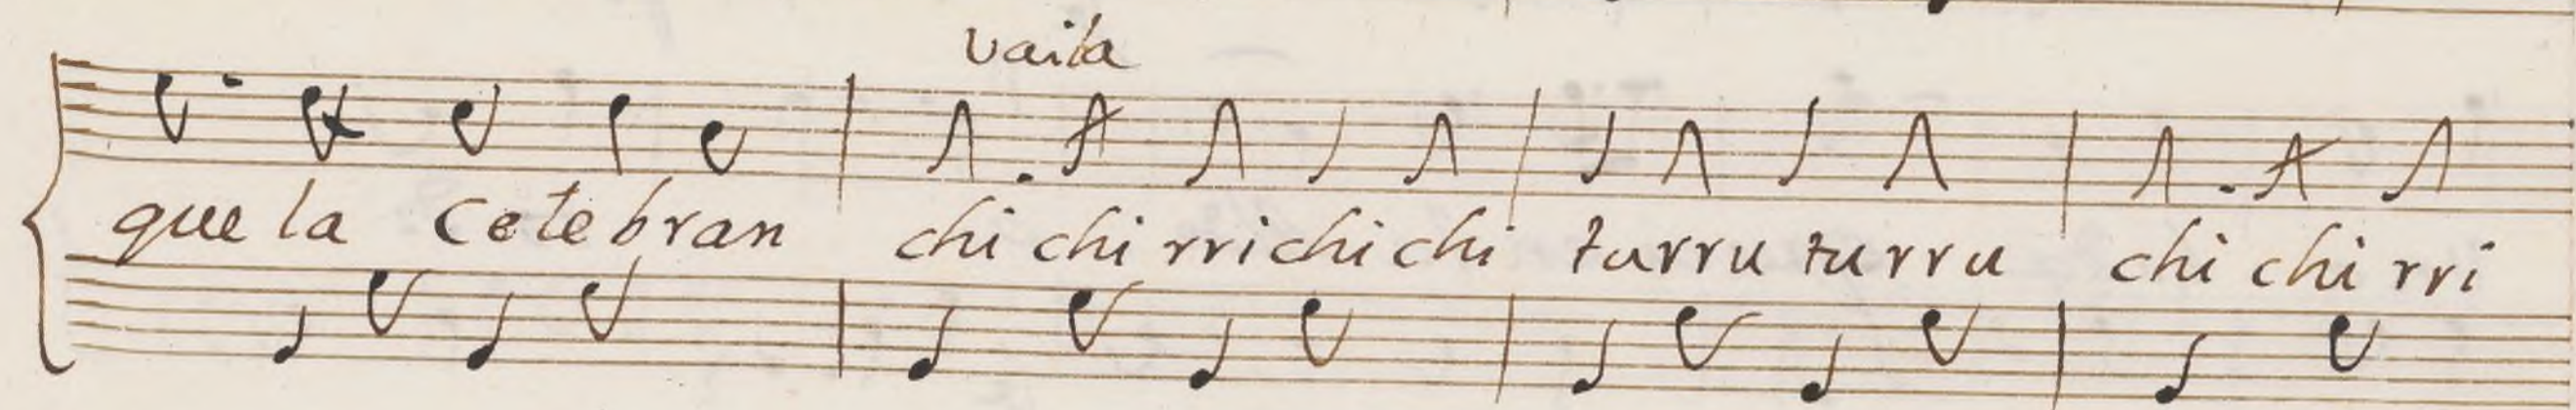 vaila
que la Cele bran chi chi rri chi chi turru turru chi chi rri